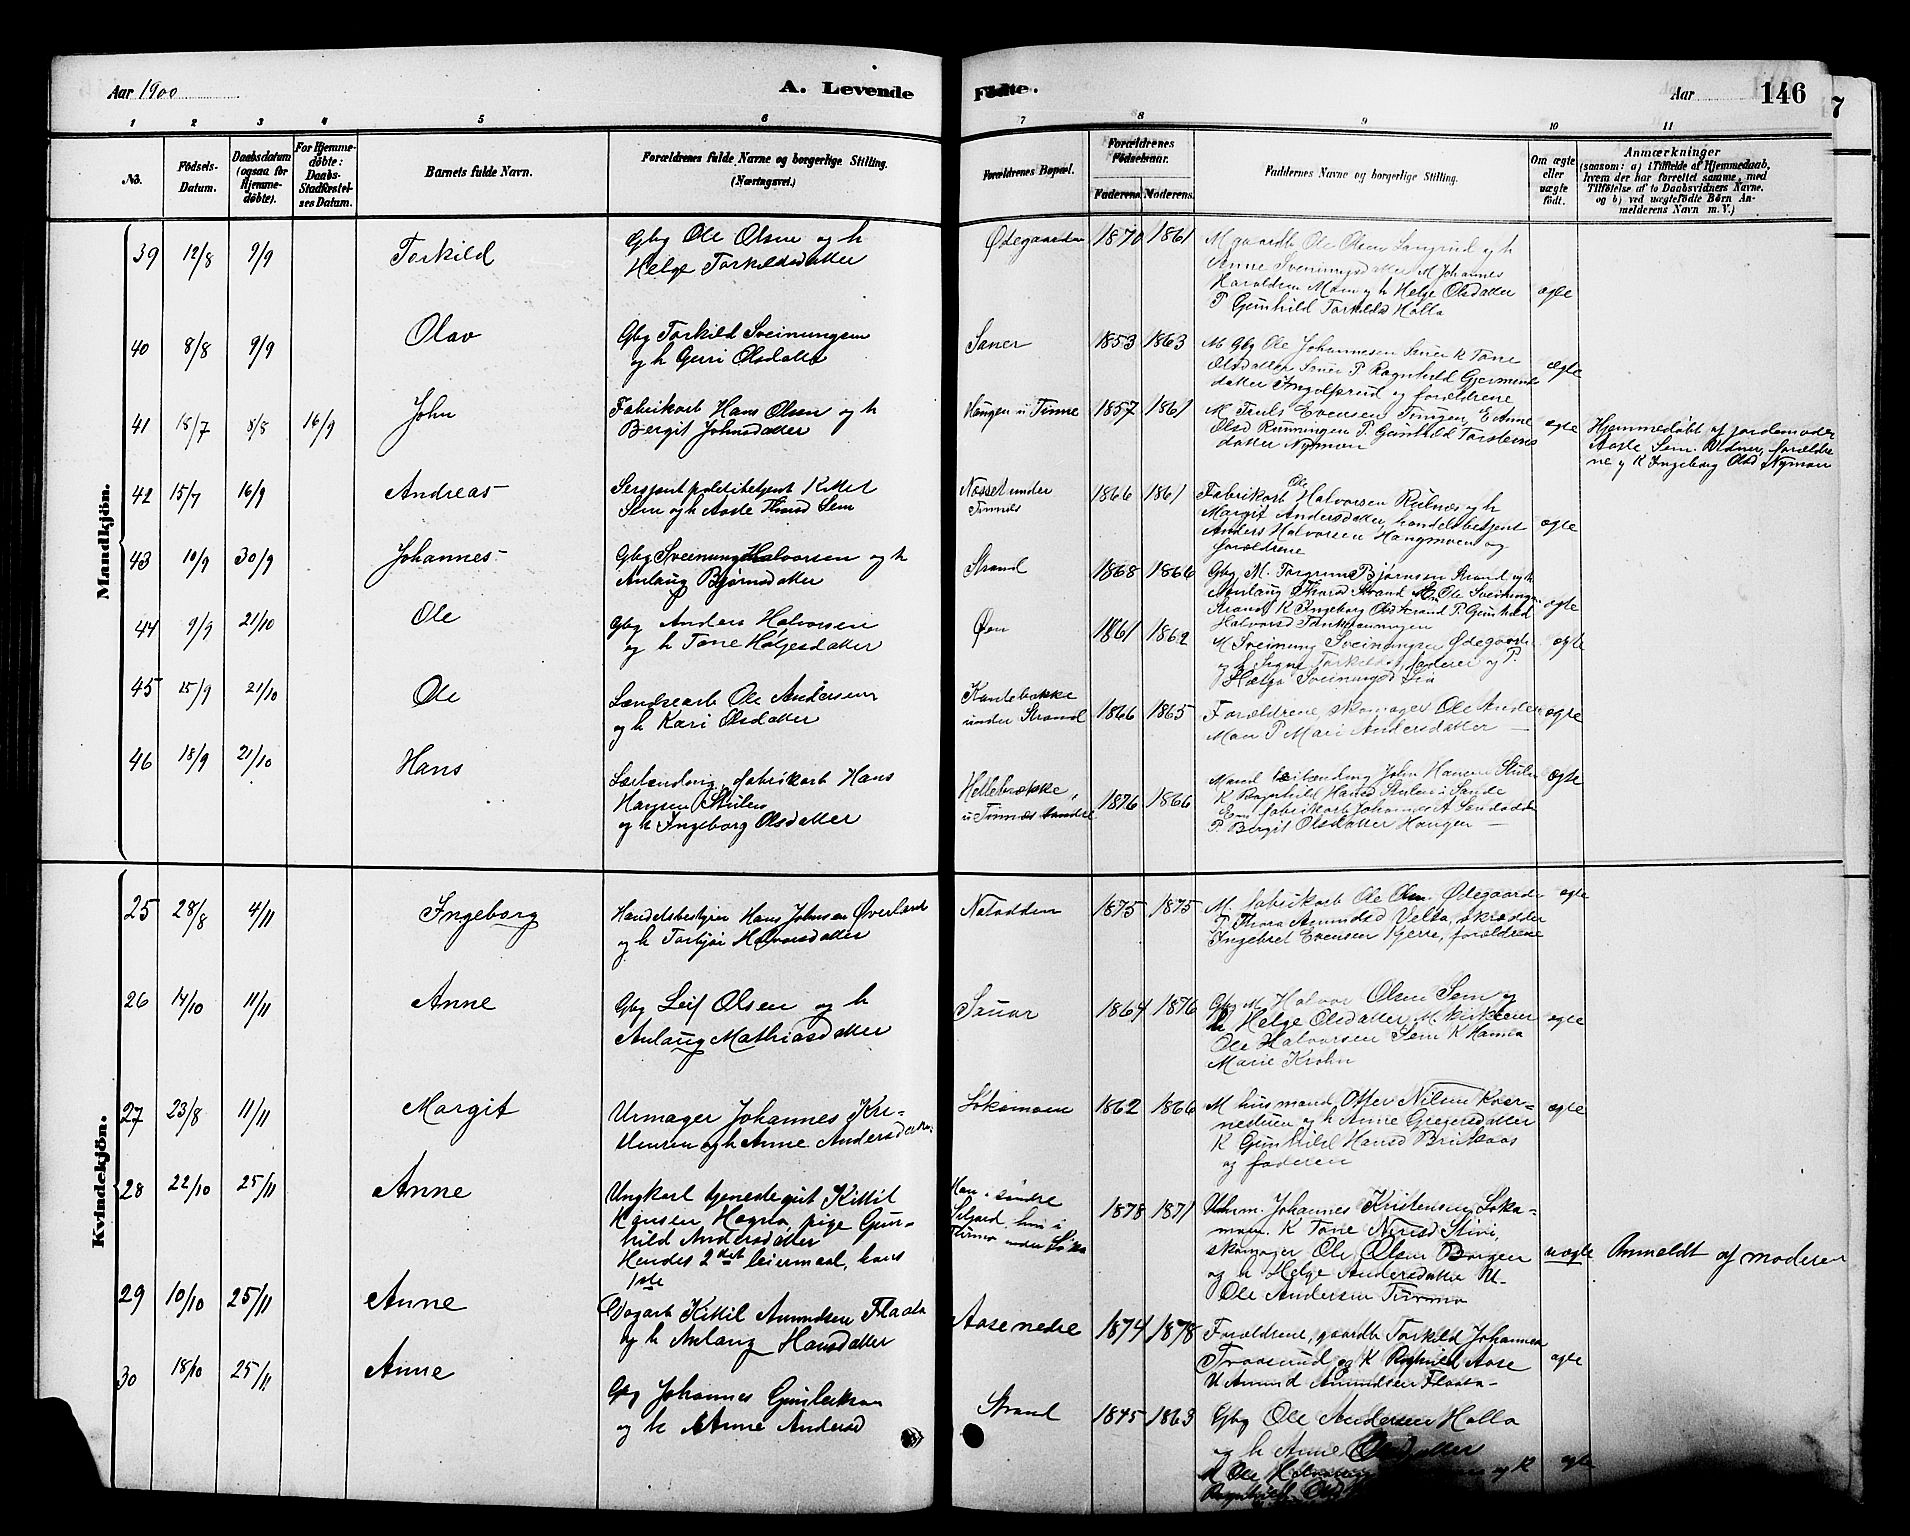 Aar 1900
A. Levende
Fødte.
Aar
146
7
1 2 3 4 5 6 7 8 9 10 11
No.
Fødsels-
Datum.
Daabsdatum
(ogsaa for
Hjemme-
døbte).
For Hjemme-
døbte:
Daabs-
Stadfæstel-
ses Datum.
Barnets fulde Navn.
Forældrenes fulde Navne og borgerlige Stilling.
(Næringsvei.)
Forældrenes Bopæl.
Forældrenes
Fødselsaar.
Faderens. Moderens.
Faddernes Navne og borgerlige Stilling.
Om ægte
eller
uægte
født.
Anmærkninger
(saasom: a) i Tilfælde af Hjemmedaab,
hvem der har forrettet samme, med
Tilføielse af to Daabsvidners Navne.
og b) ved uægtefødte Børn An-
melderens Navn m. V.)
Mandkjön.
39 12/8 9/9 Torkild
Gbg Ole Olsen og h
Helge Torkildsdatter
Ødegaarden 1870 1861
M gaardb Ole Olsen Langrud og h
Anne Sveinungsdatter M Johannes
Haraldsen Moen og h Helge Olsdatter
P Gunhild Torkilds Holla
ægte
40 8/8 9/9 Olav
Gbg Torkild Sveinungsen
og h Gurri Olsdatter
Saner 1853 1863
M Gbg Ole Johannesen Saner K Tone
Olsdatter Saner P Ragnhild Gjermunds
datter Ingolfsrud og forældrene
ægte
41 18/7 8/8 16/9 John
Fabrikarb Hans Olsen og h
Bergit Johnsdatter
Haugen u Tinne 1857 1861
M Truls Evensen Tinnen, E Anne
Olsd Runningen P. Gunhild Torstens
datter Nymoen
ægte
Hjemmedøbt af jordemoder
Aaste Sem. Vidner, forældre
ne og K Ingeborg Olsd Nymoen
42 15/7 16/9 Andreas
Sersjant politibetjent Kittel
Sem og h Aaste Thorsd Sem
Nosset under
Tinnes
1866 1861
Fabrikarb Ole Halvorsen Rulnes og h
Margit Andersdatter, handelsbetjent
Anders Halvorsen Haugmoen og
forældrene
ægte
43 10/9 30/9 Johannes
Gbg Sveinung Halvorsen og h
Anlaug Bjørnsdatter
Strand 1868 1866
Gbg M. Torgrim Bjørnsen Strand og h
Anlaug Thorsd Strand Em Ole Sveinungsen
Strand K Ingeborg Olsd Strand P. Gunhild
Halvorsd
ægte
44 9/9 21/10 Ole
Gbg Anders Halvorsen
og h Tone Helgesdatter
Øen 1861 1862
M Sveinung Sveinungsen Ødegaard
og h Signe Torkildsd, faderen og P.
Helga Sveinungsd
ægte
45 15/9 21/10 Ole
Lændsearb Ole Andersen
og h Kari Olsdatter
Kantebække
under Strand
1866 1865
Forældrene, skomager Ole Anders
Moen P Mari Andersdatter —
ægte
46 18/9 21/10 Hans
Selveiende, fabrikarb Hans
Hansen Stulen
og h Ingeborg Olsdatter
Hellebrække,
u Tinnes søndre
1876 1866
Mand John Hansen Stulen
K Ragnhild Hansd Stulen i Sande
Em fabrikarb Johannes A Sandodden
P. Bergit Olsdatter Haugen —
ægte
Kvindekjön.
25 28/8 4/11 Ingeborg
Handelsbestyrer Hans Johnsen Øverland
og h Torbjør Halvorsdatter
Notodden 1875 1875
M. fabrikarb Ole Olsen Ødegaarden
P. Thora Amundsd Velta, skrædder
Ingebret Evensen Kjerre, forældrene
ægte
26 14/10 11/11 Anne
Gbg Leif Olsen og h
Anlaug Mathiasdatter
Sauar 1864 1876
Gbg M Halvor Olsen Sem og
h Helge Olsdatter, M. kirketjener
Ole Halvorsen Sem K Hanna
Marie Krohn
ægte
27 23/8 11/11 Margit
Urmager Johannes Kri-
stensen og h Anne Andersdatter
Løkamoen 1862 1866
M husmand Otter Nilsen Kver-
nestuen og h Anne Gregersdatter
K Gunhild Hansd Brukaas
og faderen
ægte
28 22/10 25/11 Anne
Ungkarl tjenestegut Kittil
Hansen Hagen, pige Gun-
hild Andersdatter
Hendes 2det leiermaal, hans
1ste
Han i søndre
Seljord, hun i
Tinnes under Løka
1878 1871
Urm. Johannes Kristensen Løka-
moen. K Tone Nirisd Stivi,
skomager Ole Olsen Borgen
og h Helge Andersdatter U.
Ole Andersen Tinnes
uægte
Anmeldt af moderen
29 10/10 25/11 Anne
Dagarb Kittil Amundsen Flaata
og h Anlaug Hansdatter
Aase nedre 1874 1878
Forældrene, gaardb Torkild Johannesen
Traaserud, og K Ragnhild Aase
U Amund Amundsen Flaata-
ægte
30 18/10 25/11 Anne
Gbg Johannes Gunleiksen
og h Anne Andersd
Strand 1845 1863
Gbg Ole Andersen Holla
og h Anne Olsdatter
M Ole Halvorsen og K
Ragnhild Olsd
ægte